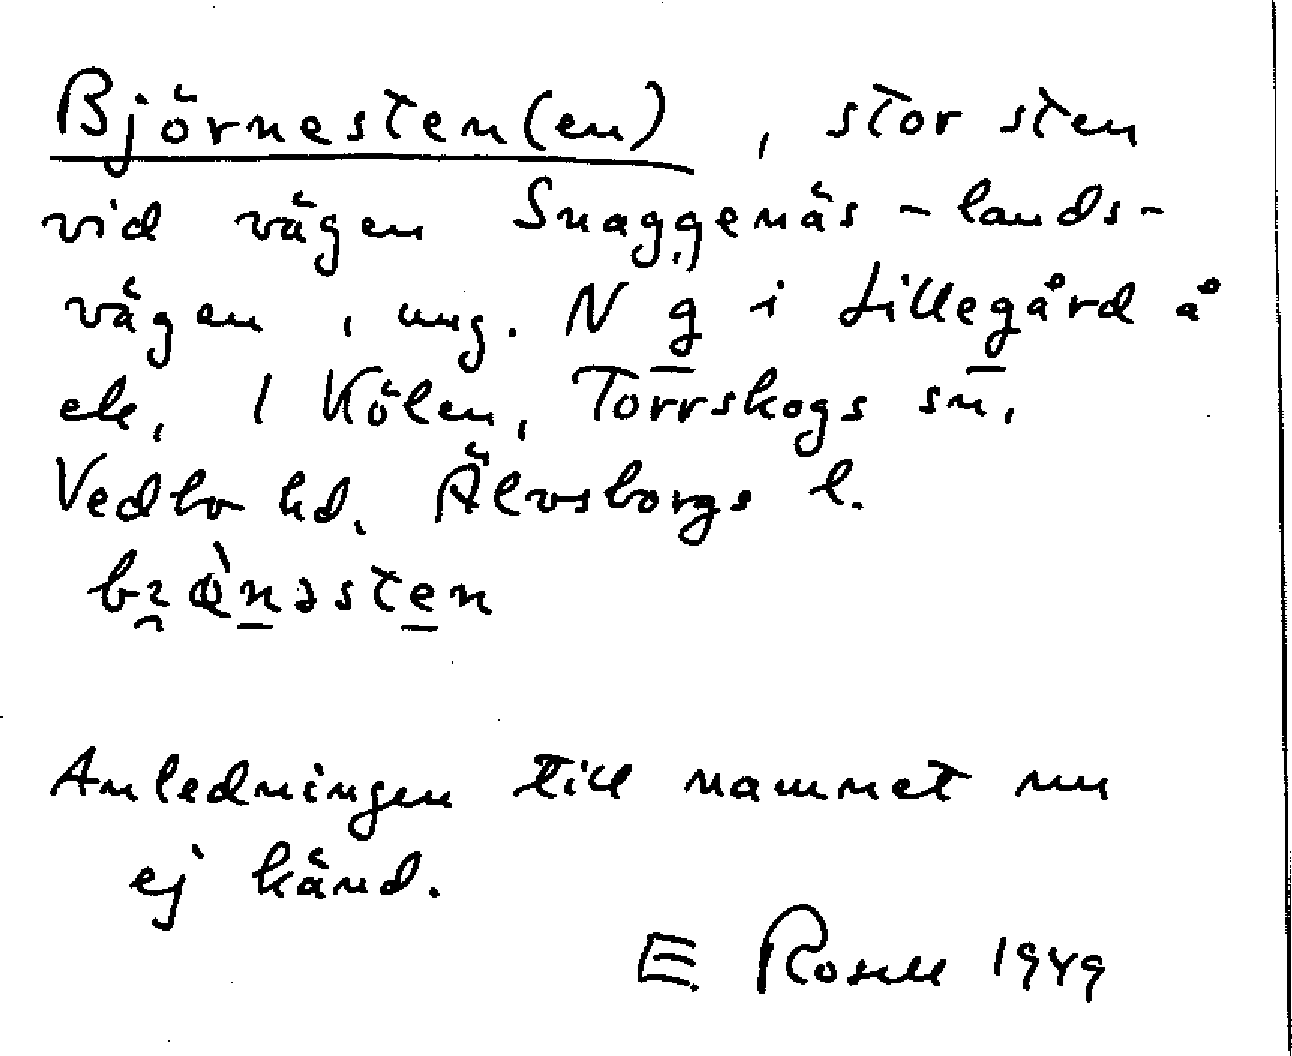 Björnesten(en), stor sten
vid vägen Snaggenäs - lands-
vägen, ung. N g i Lillegård å
ek, 1 Kölen, Torrskogs sn,
Vedbo hd, Älvsborgs l.
Anledningen till namnet nu
ej känd.
E. Rosell 1949